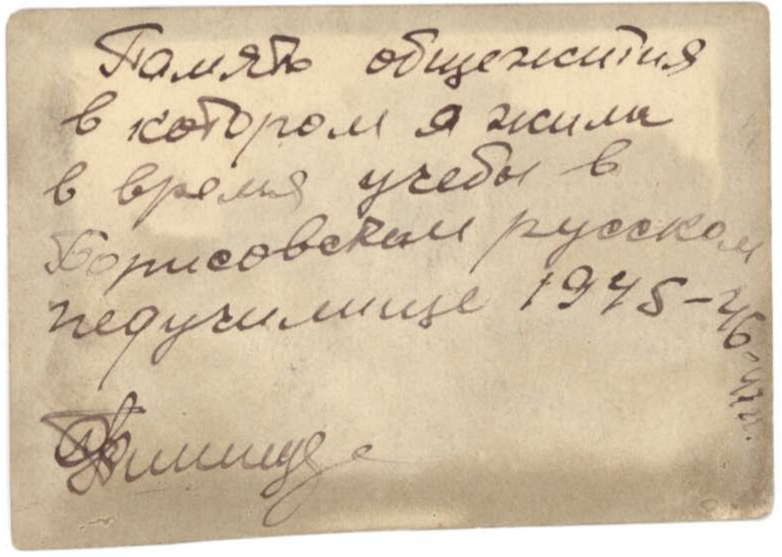 Память общежития
в котором я жила
в время учебы в
Борисовском русском
педучилище 1945–46-47г.